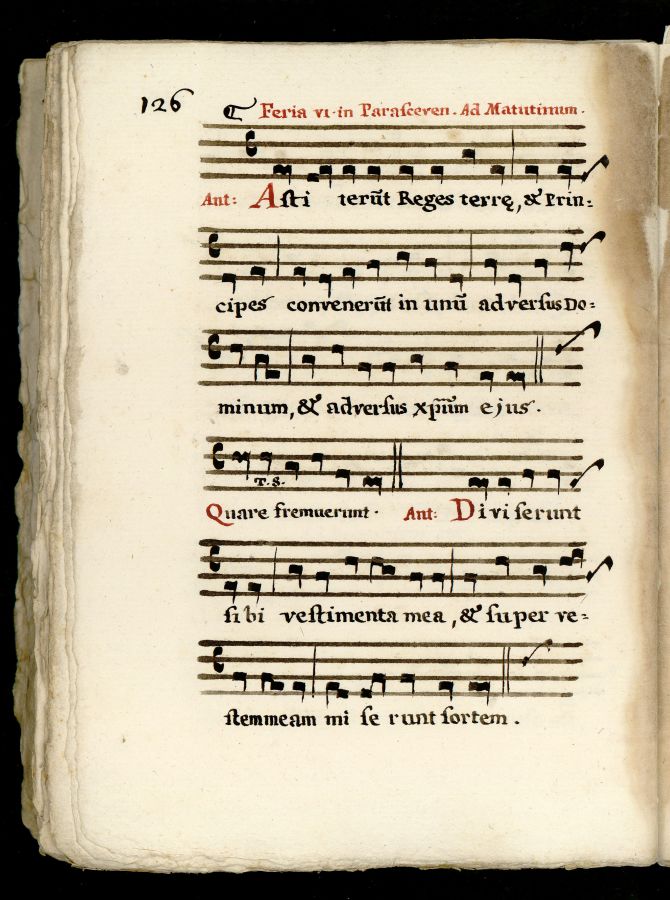 126
Feria vi. in Parasceven. Ad Matutinum.
Ant: Asti terūt Reges terrę, & Prin=
cipes convenerūt in unū adversus Do=
minum, & adversus xp̄um ejus.
T. 8.
Quare fremuerunt. Ant: Divi serunt
si bi vestimenta mea, & super ve=
stem meam mi se runt sortem.